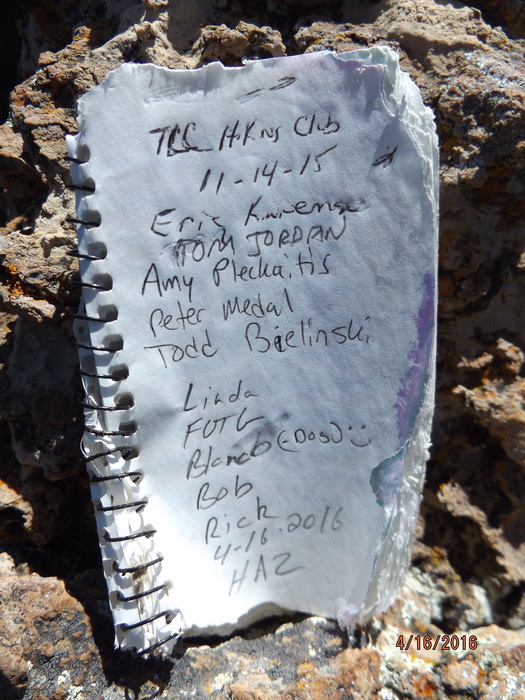 TLC Hking Club
11-14-15
Eric
TOM JORDAN
Amy Pleckaitis
Peter Medal
Todd Bielinski
Linda
FOTG
(Dos)
Bob
Rick
4-16-2016
HAZ
4/16/2016